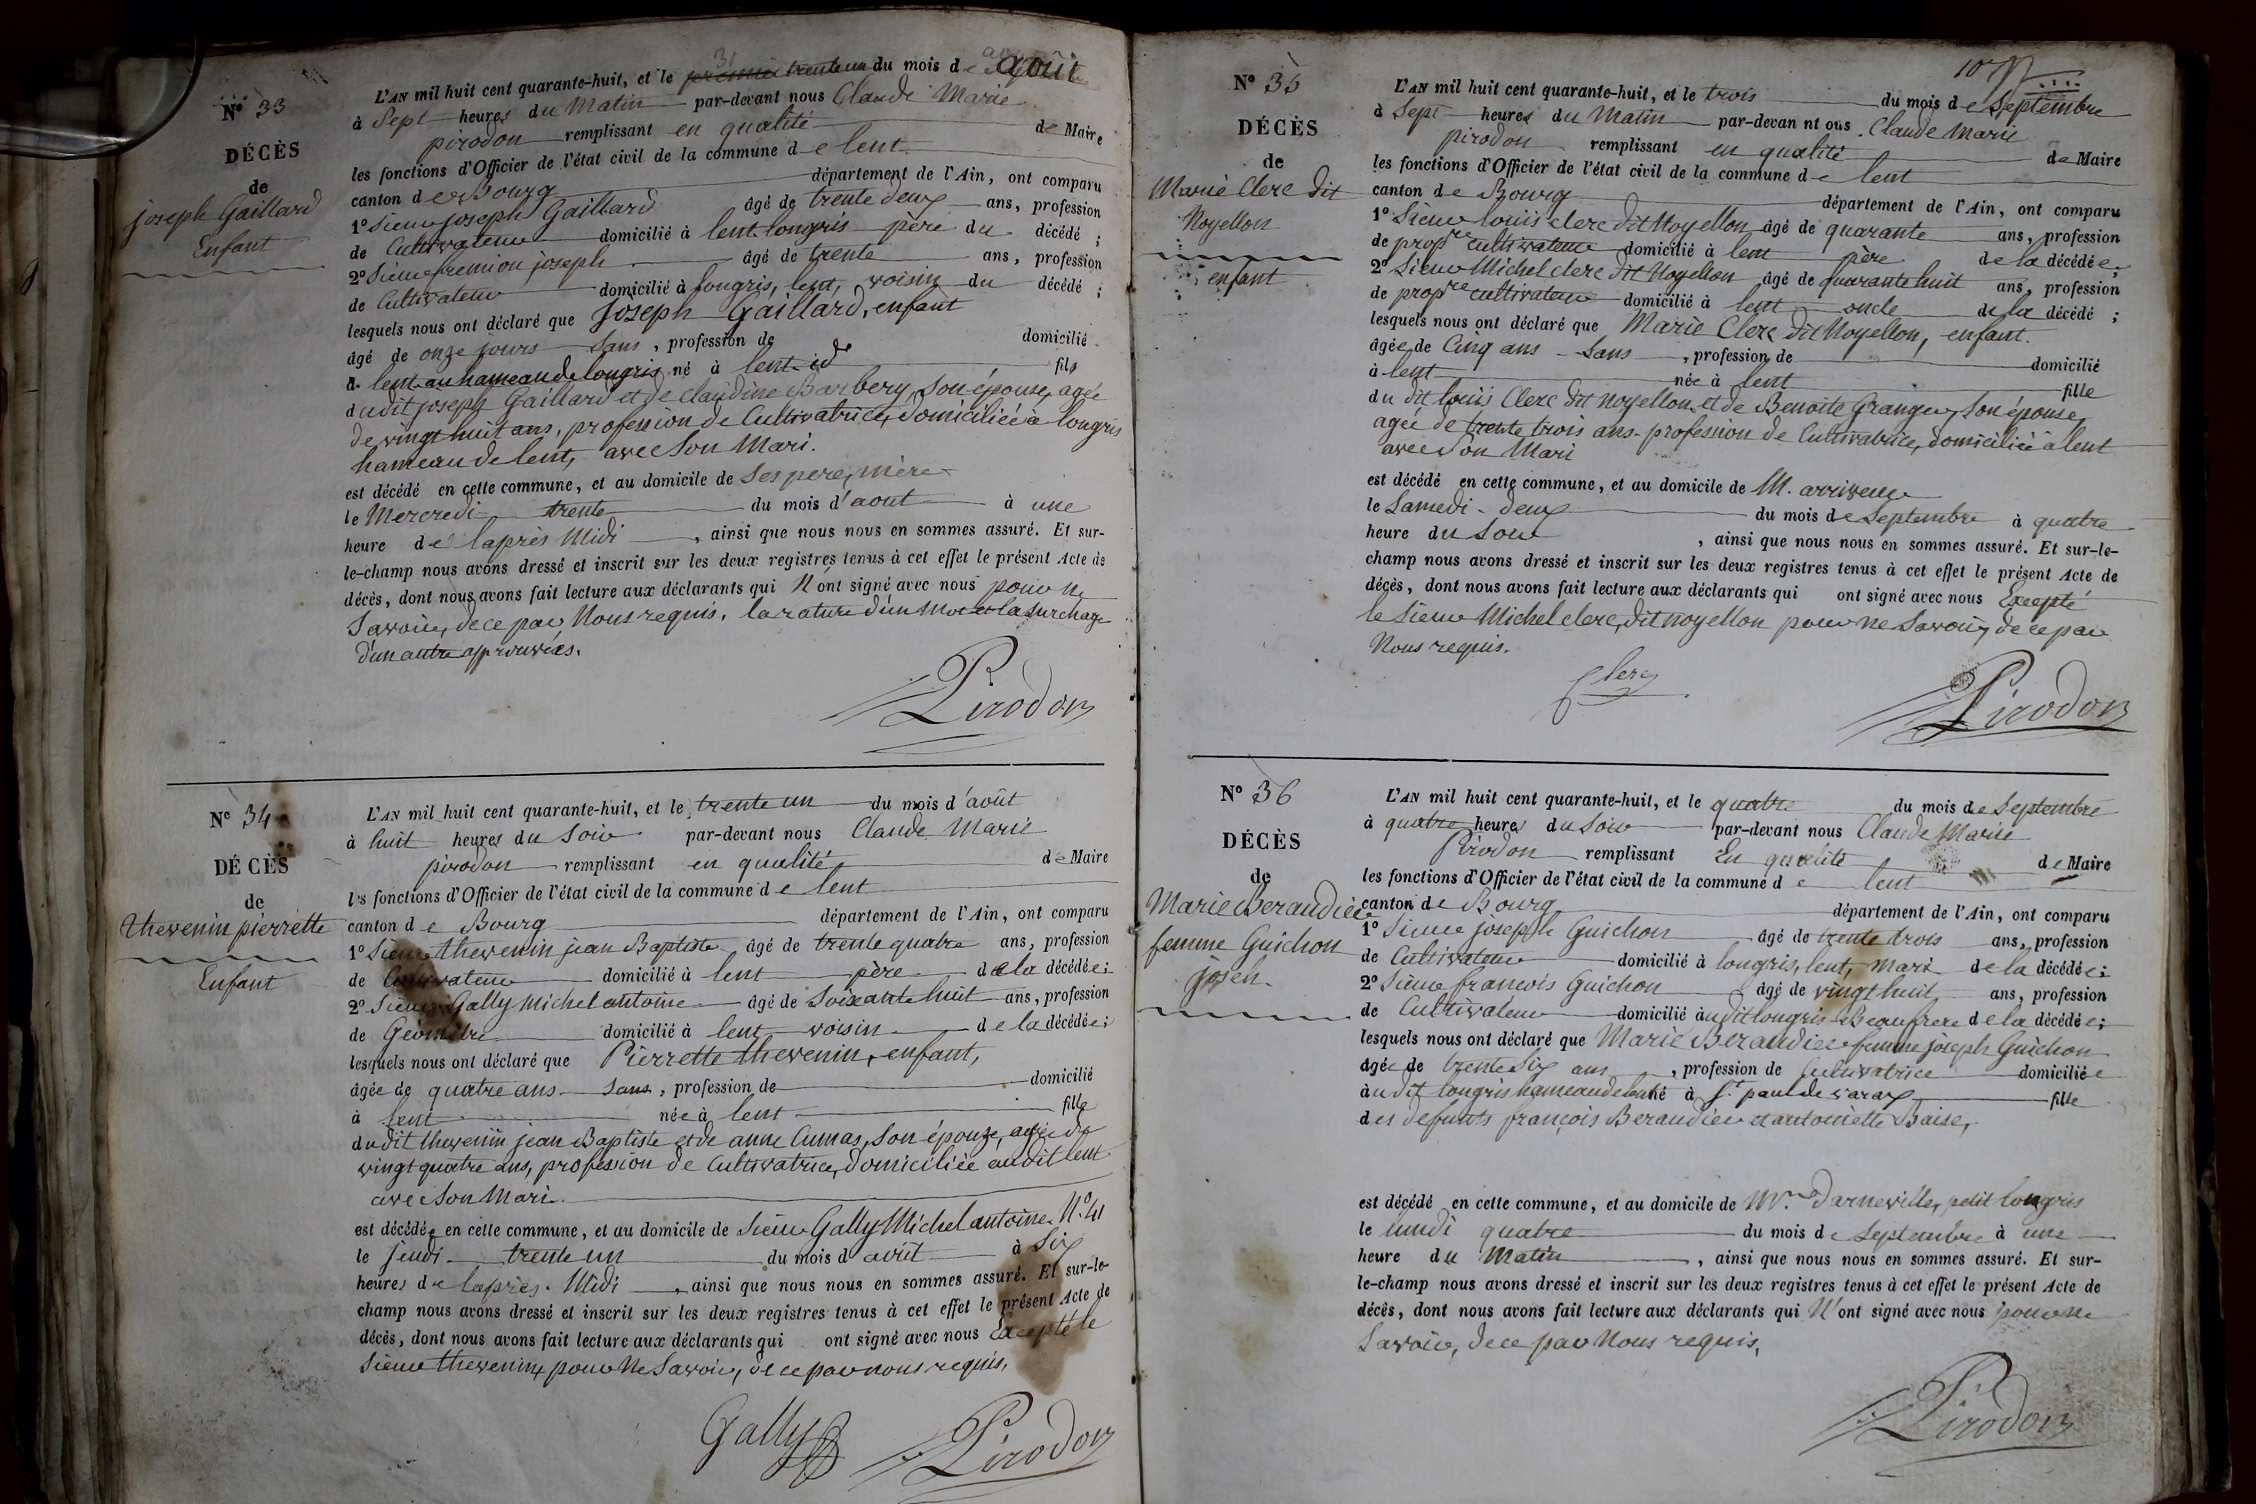 N° 33
DÉCÈS
de
joseph Gaillard
Enfant
L'AN mil huit cent quarante-huit, et le premier trente un du mois de août
31
à Sept heures du Matin par-devant nous Claude Marie
pirodon remplissant en qualité de Maire
les fonctions d'Officier de l'état civil de la commune de lent
canton de Bourg département de l'Ain, ont comparu
1° Sieur joseph Gaillard âgé de trente deux ans, profession
de Cultivateur domicilié à lent longris père du décédé ;
2° Sieur fremion joseph âgé de trente ans, profession
de Cultivateur domicilié à longris, lent, voisin du décédé ;
lesquels nous ont déclaré que Joseph Gaillard, enfant
âgé de onze jours Sans, profession de domicilié
à lent au hameau de longris né à lent id fils
dudit joseph Gaillard et de claudine Barbery, Son épouse, agée
de vingt huit ans, profession de Cultivatrice, domiciliée à longris
hameau de lent, avec Son Mari.
est décédé en cette commune, et au domicile de Ses pere, mère
le Mercredi trente du mois d'aout à une
heure de laprès Midi, ainsi que nous nous en sommes assuré. Et sur-
le-champ nous avons dressé et inscrit sur les deux registres tenus à cet effet le présent Acte de
décès, dont nous avons fait lecture aux déclarants qui N'ont signé avec nous pour ne
Savoir, de ce par Nous requis. la rature d'un mot et la Surcharge
d'un autre approuvées.
Pirodon
N° 34
DÉCÈS
de
thevenin pierrette
Enfant
L'AN mil huit cent quarante-huit, et le trente un du mois d'août
à huit heures du Soir par-devant nous Claude Marie
pirodon remplissant en qualité de Maire
les fonctions d'Officier de l'état civil de la commune de lent
canton de Bourg département de l'Ain, ont comparu
1° Sieur thevenin jean Baptiste âgé de trente quatre ans, profession
de Cultivateur domicilié à lent père de la décédée ;
2° Sieur Gally Michel antoine âgé de Soixante huit ans, profession
de Géomètre domicilié à lent voisin de la décédée ;
lesquels nous ont déclaré que Pierrette thevenin, enfant,
âgée de quatre ans Sans, profession de domicilié
à lent née à lent fille
du dit thevenin jean Baptiste et de anne Cumas, Son épouze, agée de
vingt quatre ans, profession de Cultivatrice, domiciliée audit lent
avec Son Mari
est décédée en cette commune, et au domicile de Sieur Gally Michel antoine N° 41
le jeudi trente un du mois d'août à Six
heures de laprès Midi, ainsi que nous nous en sommes assuré. Et sur-le-
champ nous avons dressé et inscrit sur les deux registres tenus à cet effet le présent Acte de
décès, dont nous avons fait lecture aux déclarants qui ont signé avec nous Excepté le
Sieur thevenin, pour Ne Savoir, de ce par nous requis,
Gally Pirodon
N° 35
DÉCÈS
de
Marie Clerc dit
Noyellon
enfant
L'AN mil huit cent quarante-huit, et le trois du mois de Septembre
à Sept heures du Matin par-devan nt ous Claude Marie
pirodon remplissant en qualité de Maire
les fonctions d'Officier de l'état civil de la commune de lent
canton de Bourg département de l'Ain, ont comparu
1° Sieur louis clerc dit Noyellon âgé de quarante ans, profession
de propre cultivateur domicilié à lent père de la décédée ;
2° Sieur Michel clerc dit Noyellon âgé de quarante huit ans, profession
de propre cultivateur domicilié à lent oncle de la décédé ;
lesquels nous ont déclaré que Marie Clerc dit Noyellon, enfant.
âgée de Cinq ans Sans, profession de domicilié
à lent née à lent fille
du dit louis Clerc dit noyellon et de Benoite Granger, Son épouse,
agée de trente trois ans profession de Cultivatrice, domiciliée à lent
avec Son Mari
est décédé en cette commune, et au domicile de M. arriveur
le Samedi deux du mois de Septembre à quatre
heure du Soir, ainsi que nous nous en sommes assuré. Et sur-le-
champ nous avons dressé et inscrit sur les deux registres tenus à cet effet le présent Acte de
décès, dont nous avons fait lecture aux déclarants qui ont signé avec nous Excepté
le Sieur Michel clerc, dit noyellon pour ne Savoir, de ce par
Nous requis.
Clerc Pirodon
N° 36
DÉCÈS
de
Marie Beraudier
femme Guichon
joseh.
L'AN mil huit cent quarante-huit, et le quatre du mois de Septembre
à quatre heures du Soir par-devant nous Claude Marie
Pirodon remplissant En qualité de Maire
les fonctions d'Officier de l'état civil de la commune de lent
canton de Bourg département de l'Ain, ont comparu
1° Sieur joseph Guichon âgé de trente trois ans, profession
de Cultivateur domicilié à longris, lent, Mari de la décédée ;
2° Sieur francois Guichon âgé de vingt huit ans, profession
de Cultivateur domicilié àudit longris Beaufrere de la décédée ;
lesquels nous ont déclaré que Marie Beraudier femme joseph Guichon
âgée de trente Six ans, profession de Cultivatrice domiciliée
àudit longris hameau de lent né à St paul de varax fille
des defunts françois Beraudier et antoinette Baise,
est décédé en cette commune, et au domicile de Mr Darneville, petit longris
le lundi quatre du mois de Septembre à une
heure du Matin, ainsi que nous nous en sommes assuré. Et sur-
le-champ nous avons dressé et inscrit sur les deux registres tenus à cet effet le présent Acte de
décès, dont nous avons fait lecture aux déclarants qui N'ont signé avec nous pour ne
Savoir, de ce par Nous requis,
Pirodon